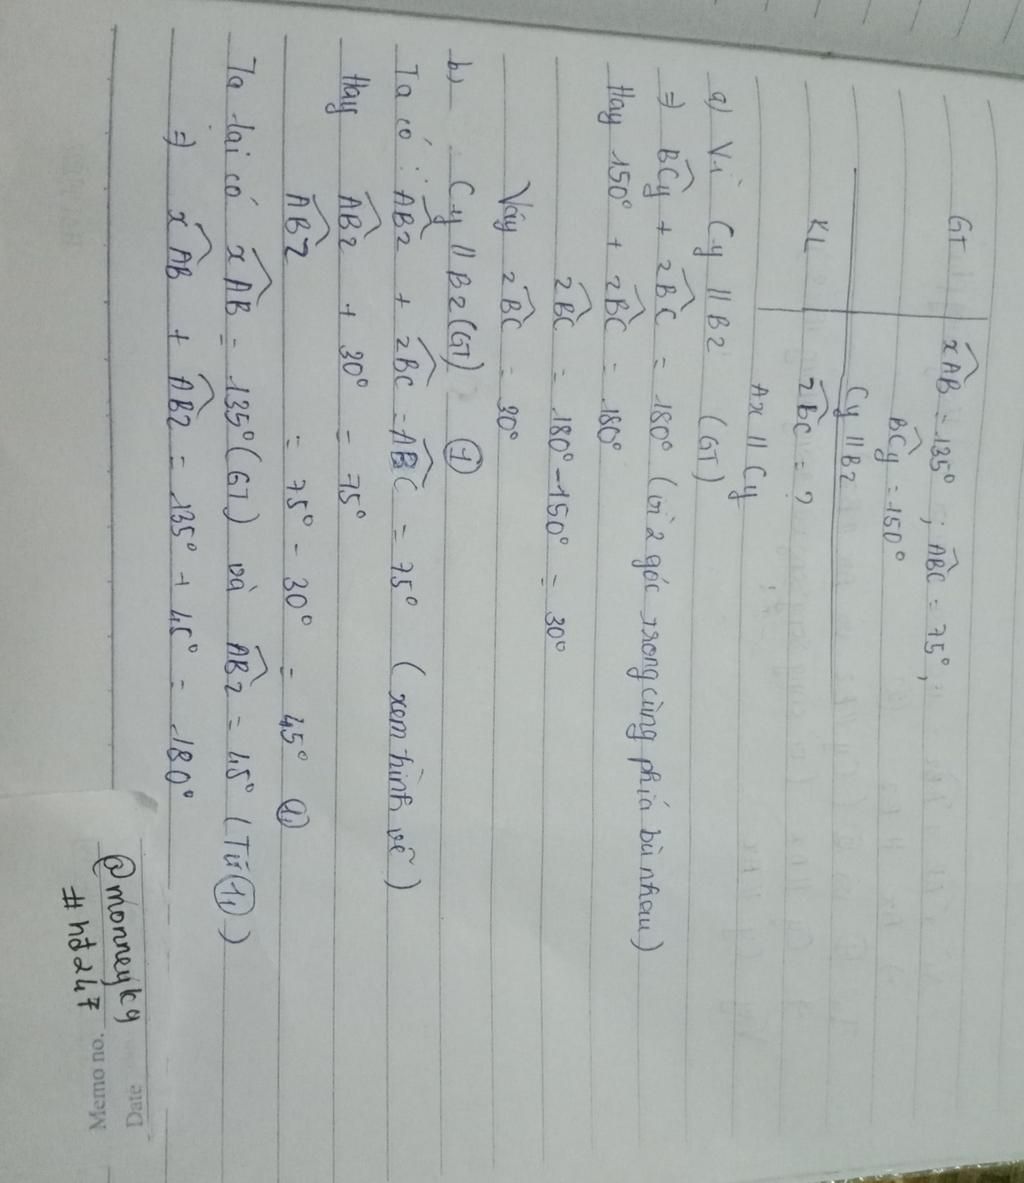 GT | x̂AB = 135° ; ABC = 75°,
BCy = 150°
Cy // Bz
KL | zBC = ?
Ax // Cy
a) Vì Cy // Bz (GT)
⇒ BCy + zBC = 180° (vì 2 góc trong cùng phía bù nhau)
Hay 150° + zBC = 180°
zBC = 180° - 150° = 30°
Vậy zBC = 30°
b) Cy // Bz (GT) (1)
Ta có : ABz + zBC = ABC = 75° (xem hình vẽ)
Hay ABz + 30° = 75°
ABz = 75° - 30° = 45° (1,)
Ta lại có xAB = 135° (GT) và ABz = 45° (Từ (1,))
⇒ xAB + ABz = 135° + 45° = 180°
@monneykg
#hd247
Memo no.
Date